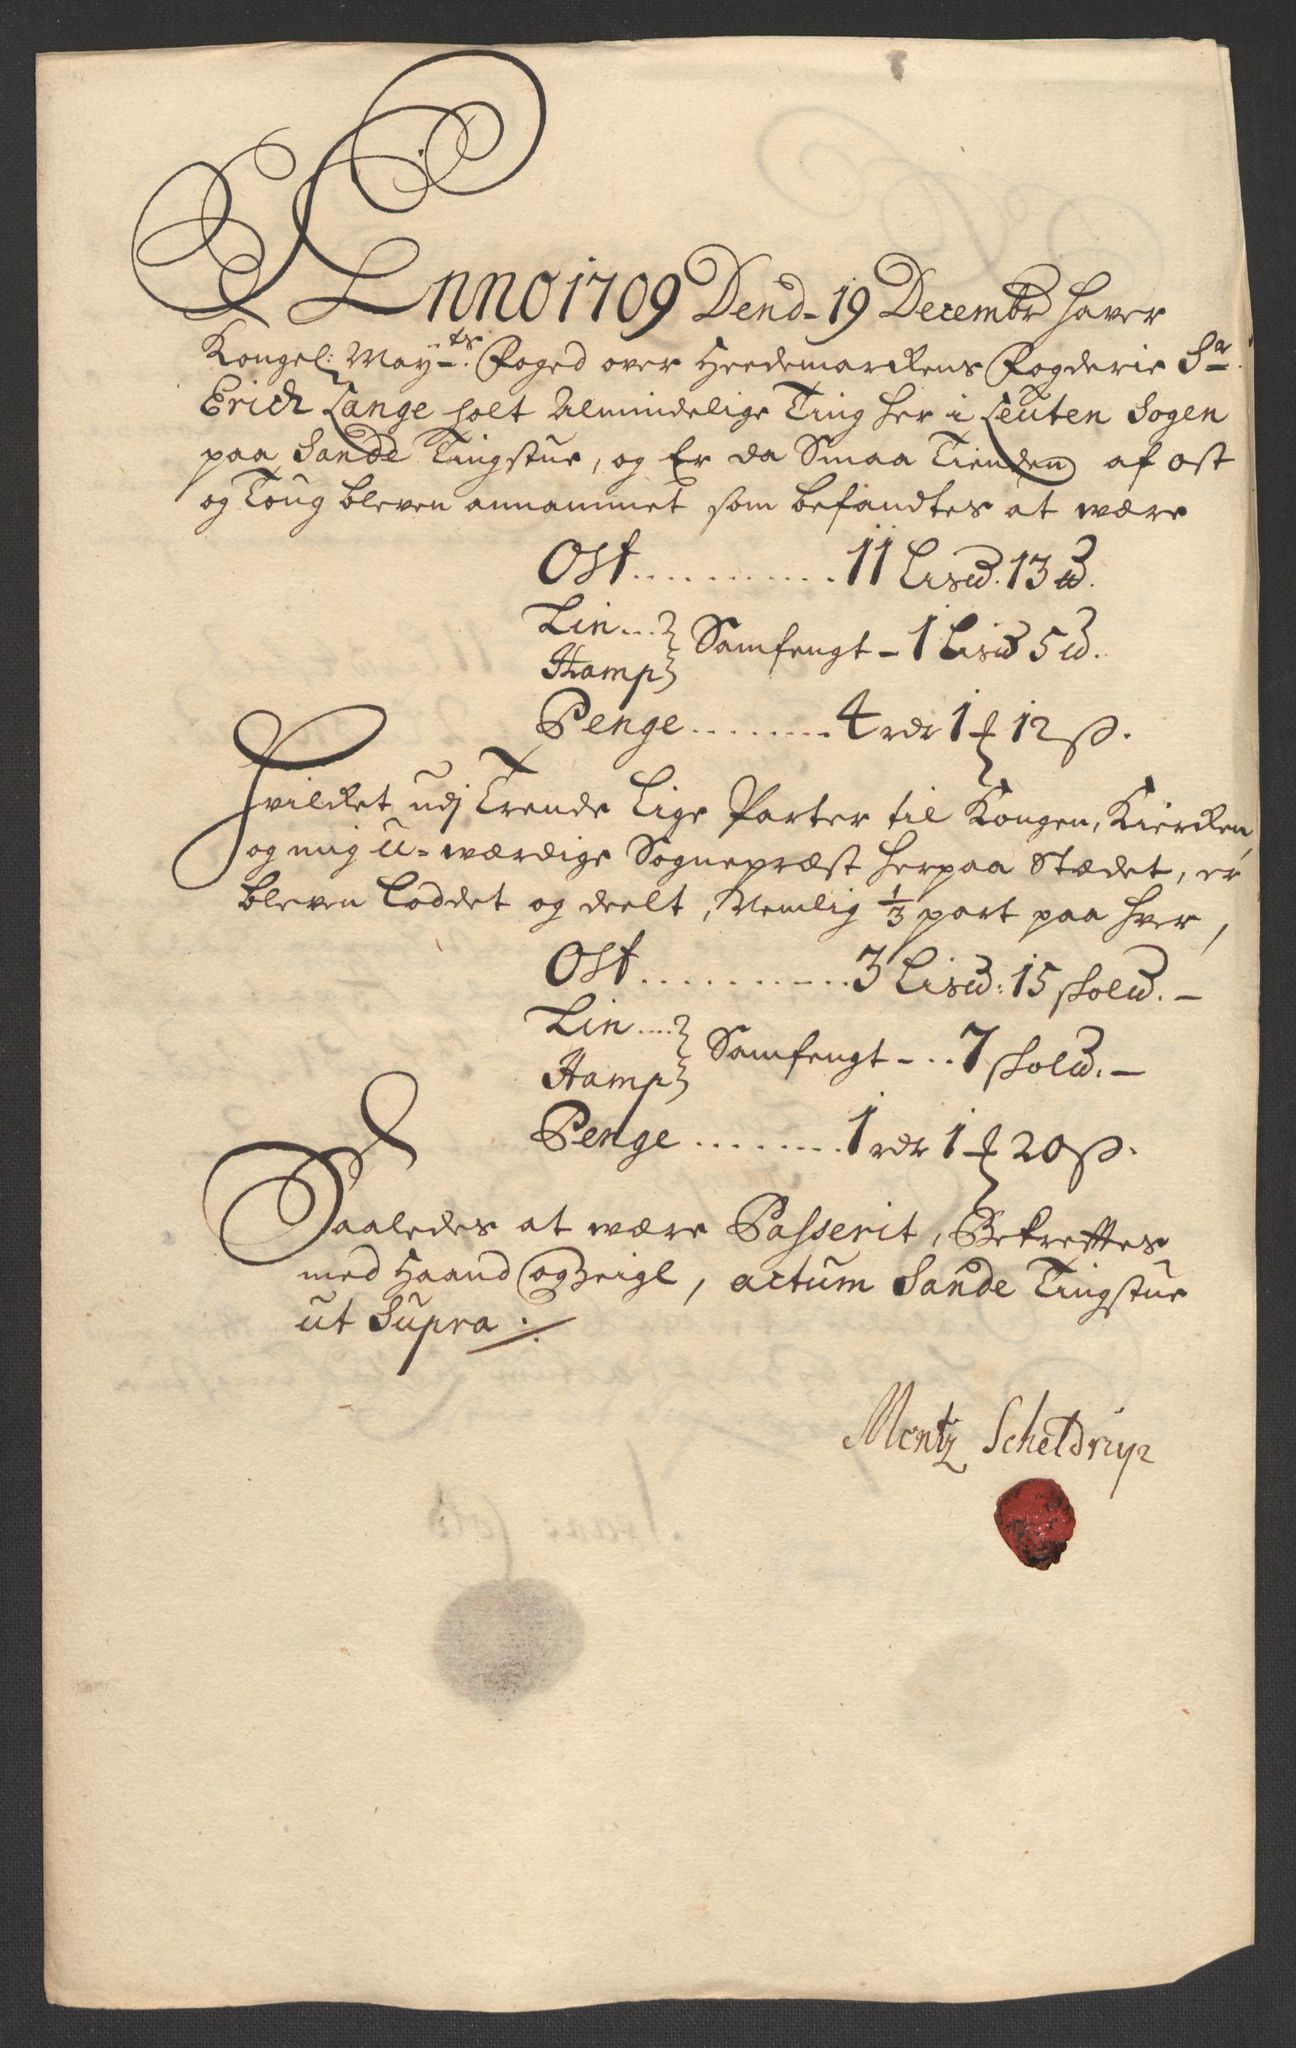 Anno 1709 Dend. 19 Decembr haver
Kongel: May.ts Foged over Heedemarckens Fogderie Sr.
Erich Lange holt Almindelige Ting her i Leuten Sogen
paa Sande Tingstue, og Er da Smaa Tienden af ost
og Toug bleven annammet som befandtes at være
Ost........... 11 Lis℔. 13 ℔.
Lin...
Hamp } Samfengt - 1 Lis℔ 5 ℔.
Penge........ 4 rdr 1 ƒ 12 ß.
Hvilcket udj Trende Lige Parter til Kongen, Kiercken,
og mig u-værdige Sognepræst herpaa Stædet, er
bleven Loddet og deelt, Nemlig 1/3 part paa hver,
Ost........... 3 Lis℔: 15 skol℔. -
Lin....
Hamp } Samfengt - .. 7 skol℔. -
Penge........ 1 rdr 1 ƒ 20 ß.
Saaledes at være Passerit, Bekreftes
med Haand og Zeigl, actum Sande Tingstue
ut Supra ./.
Mentz Scheldrup